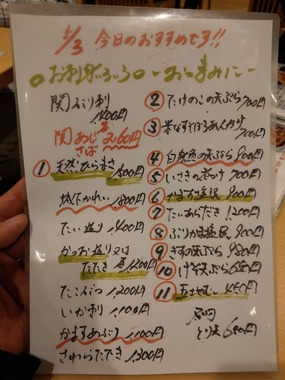 5/3 今日のおすすめです!!
お刺身いろいろ・おつまみに
関ぶり刺
1400円
関あじ
さば
各1,60円
① 天然ひらまさ
1,500円
城下かれい 1,800円
たい造り 1,400円
かつお造り又は
たたき 各1,200円
たこぶつ 1,200円
いか刺 1,100円
かますあぶり 1,100円
さわらたたき 1,300円
② たけのこの天ぷら 700円
③ 米なすひき肉あんかけ 700円
④ 白魚の天ぷら 800円
⑤ いさきの煮つけ 900円
⑥ かま塩焼 900円
⑦ たいあらだき 1,200円
⑧ ぶりかま塩焼 900円
⑨ きすの天ぷら 980円
⑩ げそ天ぷら 680円
⑪ 玉子とじ 480円
名物
とり天 680円